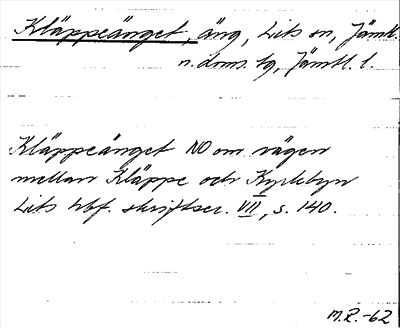 Kläppeänget, äng, Lits sn, Jämtl.
n. doms. lg, Jämtl. l.
Kläppeänget NO om vägen
mellan Kläppe och Kyrkbyn
Lits hbf. skriftser. VII, s. 140.
M.R.-62